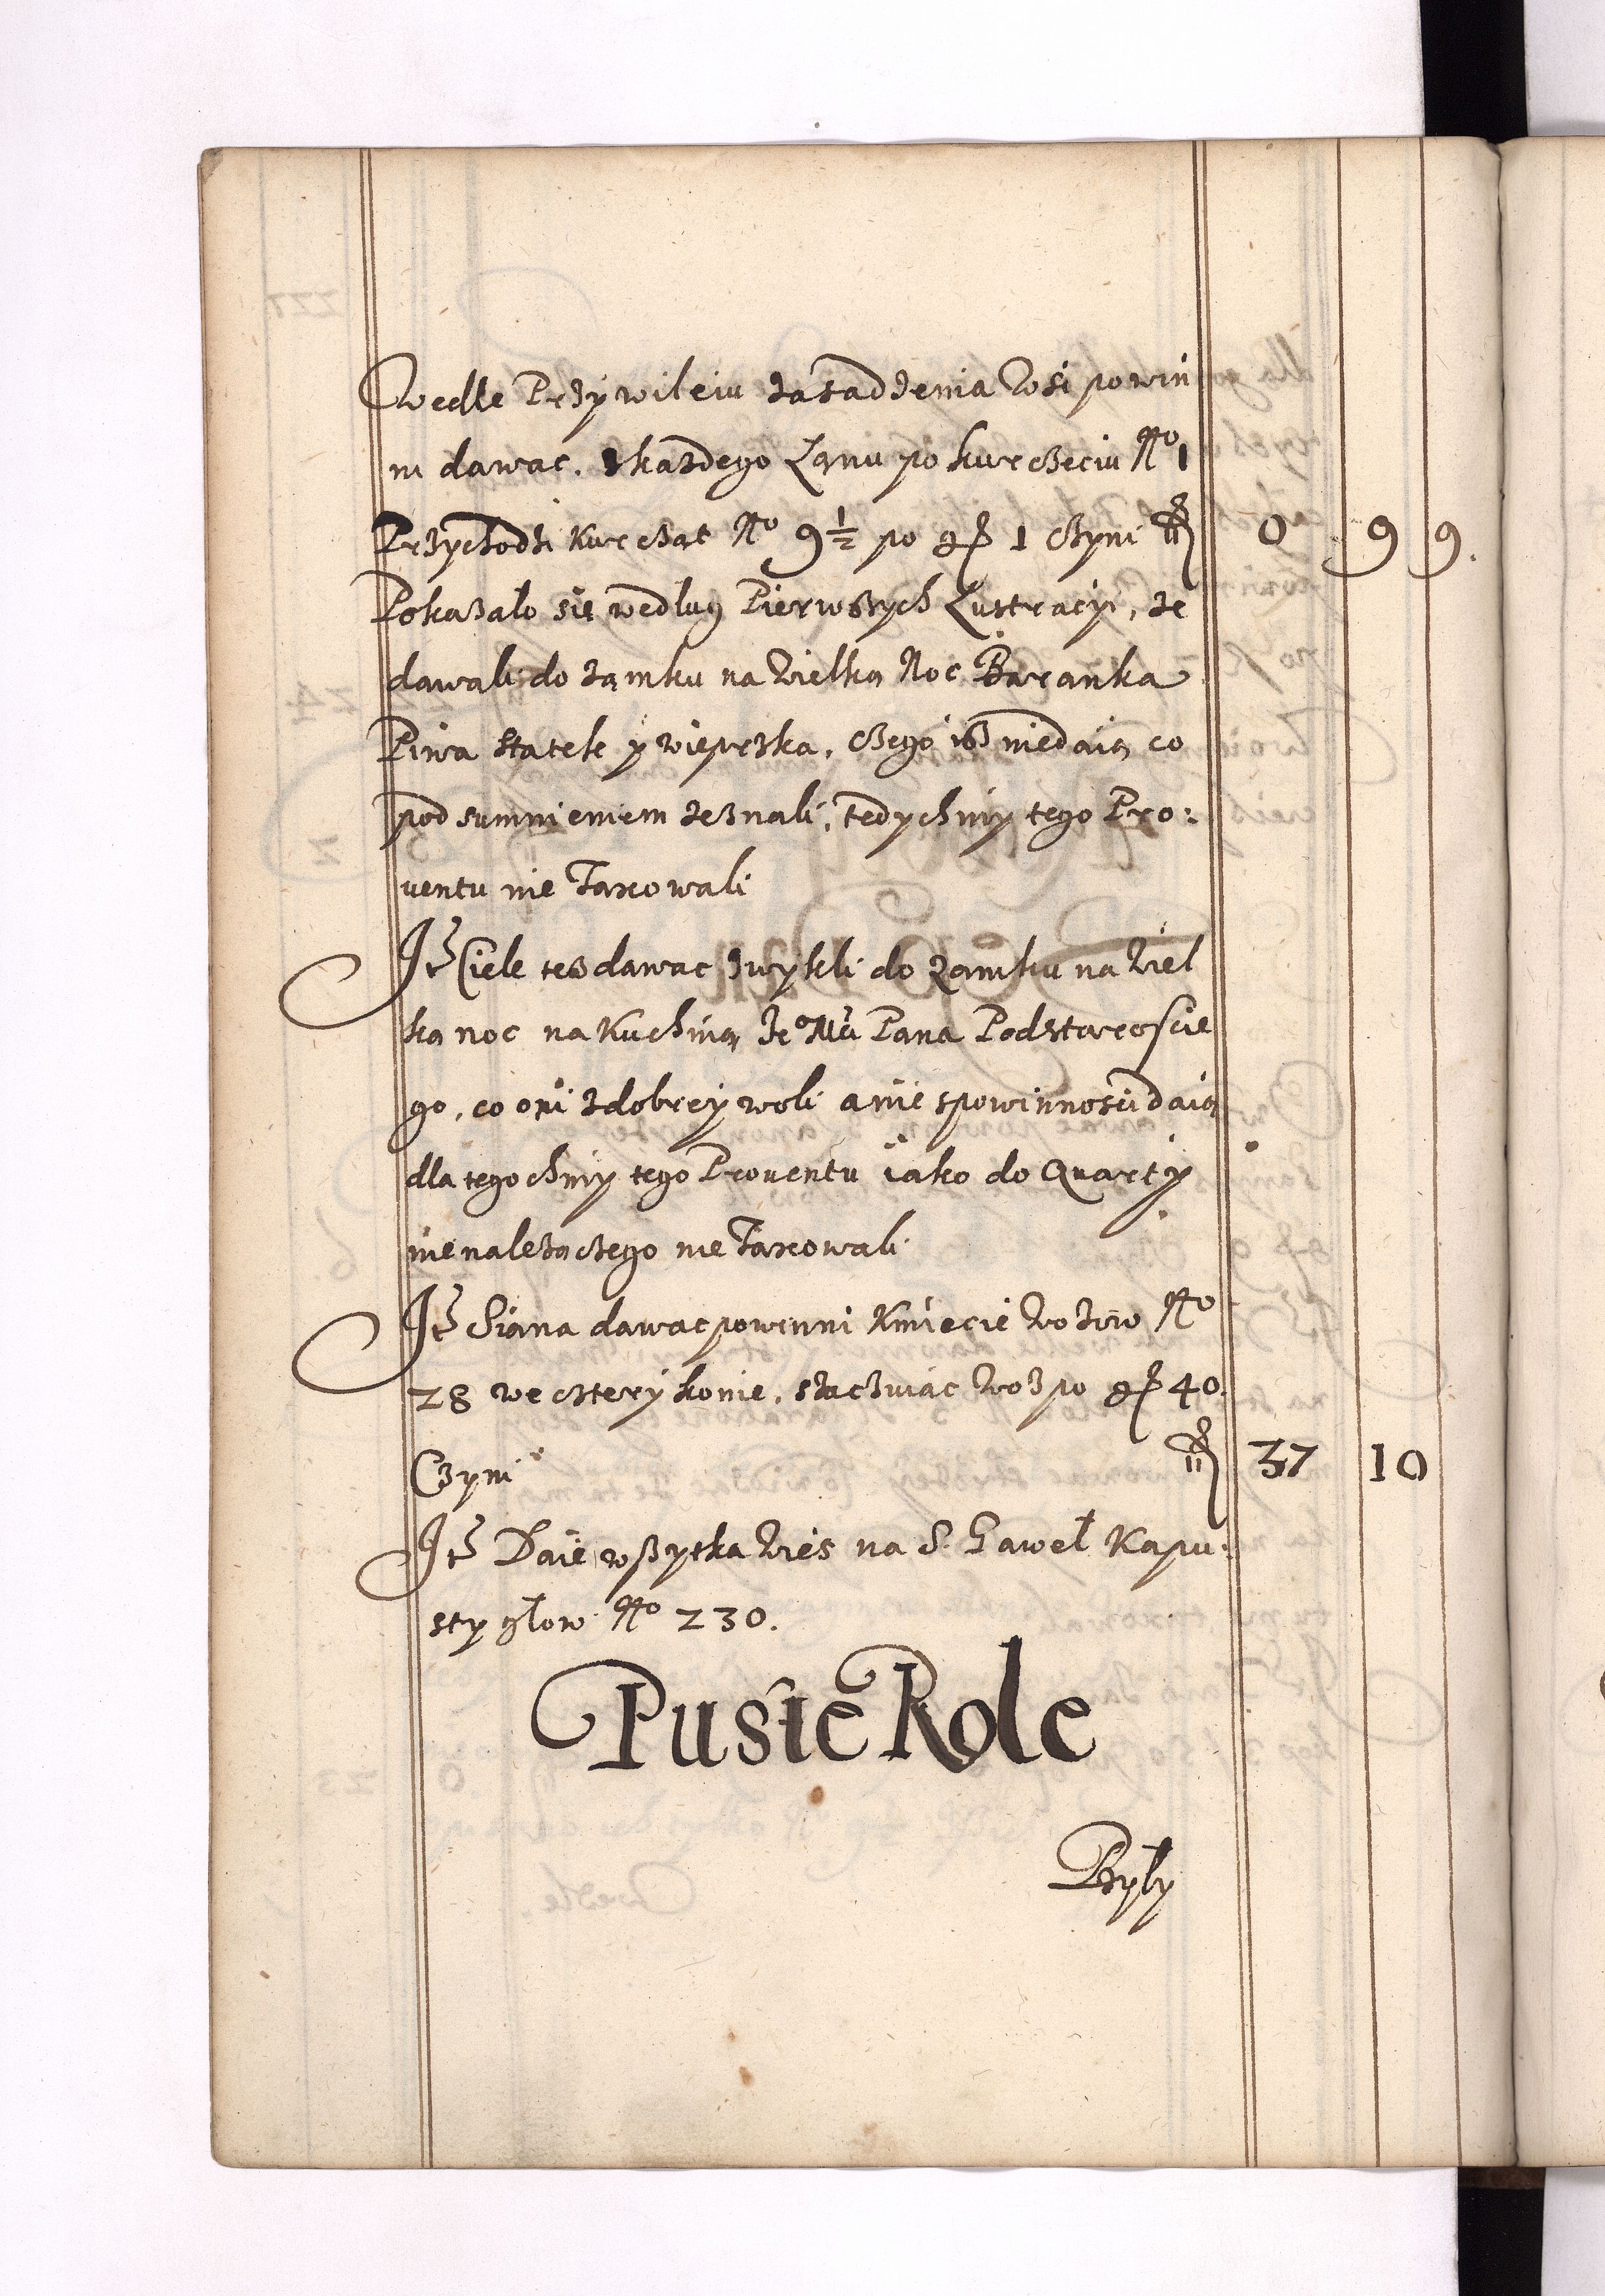 Wedle Przywileiu zasadzenia Wsi powin
ni dawac. zkazdego Lanu po kurczeciu No 1
Przychodzi kurcząt No 9½ po gr 1 czyni fl 0 9 9.
Pokazało się według Pierwszych Lustracyi, ze
dawali do zamku na Wielką Noc Baranka
Piwa statek y wieprzka, czego isz niedaią, co
pod sumnieniem zeznali, tedychmy tego Pro:
uentu nie Taxowali
It Ciele tesz dawac zwykli do zamku na Wiel
ką noc na Kuchnią Je Mci Pana Podstaroscie
go, co oni zdobrey woli a nie zpowinnosci daią
dla tegochmy tego Prouentu iako do Quarty
nienalezączego nie Taxowali
It Siana dawac powinni Kmiecie Wozow No
28 we cztery konie, szacuiąc Woz po gr 40.
Czyni fl 37 10
It Daie wszytka Wies na S. Gaweł Kapu:
sty głow No 230.
Puste Role
Były